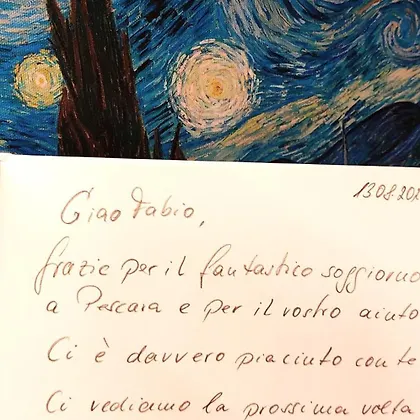 13.08.202
Ciao Fabio,
frazie per il fantastico soggiorno
a Pescara e per il vostro aiuto
Ci è davvero piaciuto con te
Ci vediamo la prossima volta